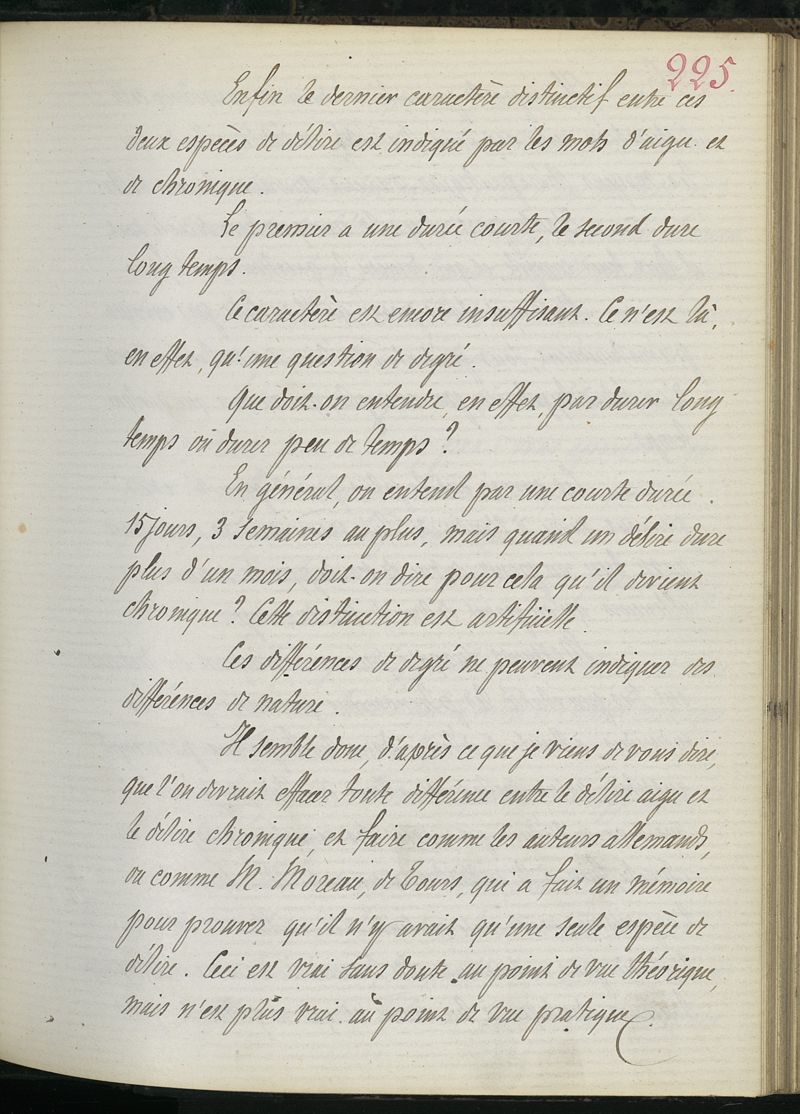 225.
Enfin le dernier caractère distinctif entre ces
deux espèces de délire est indiqué par les mots d'aigu et
de chronique.
Le premier a une durée courte, le second dure
long temps.
Ce caractère est encore insuffisant. Ce n'est là,
en effet, qu'une question de degré.
Que doit-on entendre, en effet, par durer long
temps ou durer peu de temps ?
En général, on entend par une courte durée.
15 jours, 3 semaines au plus, mais quand un délire dure
plus d'un mois, doit-on dire pour cela qu'il devient
chronique ? Cette distinction est artificielle.
Ces différences de degré ne peuvent indiquer des
différences de nature.
Il semble donc, d'après ce que je viens de vous dire,
que l'on devrait effacer toute différence entre le délire aigu et
le délire chronique, et faire comme les auteurs allemands,
ou comme M. Moreau, de Tours, qui a fait un mémoire
pour prouver qu'il n'y avait qu'une seule espèce de
délire. Ceci est vrai sans doute au point de vue théorique,
mais n'est plus vrai au point de vue pratique.